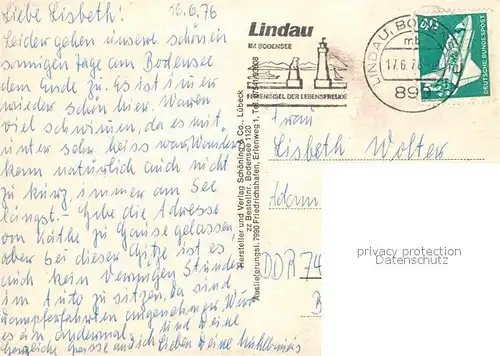 Liebe Lisbeth! 16.6.76
Leider gehen unsere schönen
sonnigen Tage am Bodensee
dem Ende zu. Es ist immer
wieder schön hier. Waren
viel schwimmen, da es mit
unter sehr heiss war. Wandern
kann natürlich auch nicht
zu kurz immer am See
längst. - Habe die Adresse
von Käthe zu Hause gelassen,
aber bei dieser Hitze ist es
auch kein Vergnügen Stunden
im Auto zu sitzen. Da sind
Dampferfahrten angenehmer.
es ein andermal. Sind deine
Herzliche Grüsse und ich Lieben deine
Hersteller und Verlag Schöning & Co., Lübeck
zz Bestellnr. Bodensee 1120
Auslieferungsl. 7990 Friedrichshafen, Erlenweg 1, Tel.
Lindau
IM BODENSEE
FERIENINSEL DER LEBENSFREUDE
LINDAU, BOD
mb
17.6.76
899
DEUTSCHE BUNDESPOST
Frau
Lisbeth Wolter
Adam
DDR 74
privacy protection
Datenschutz